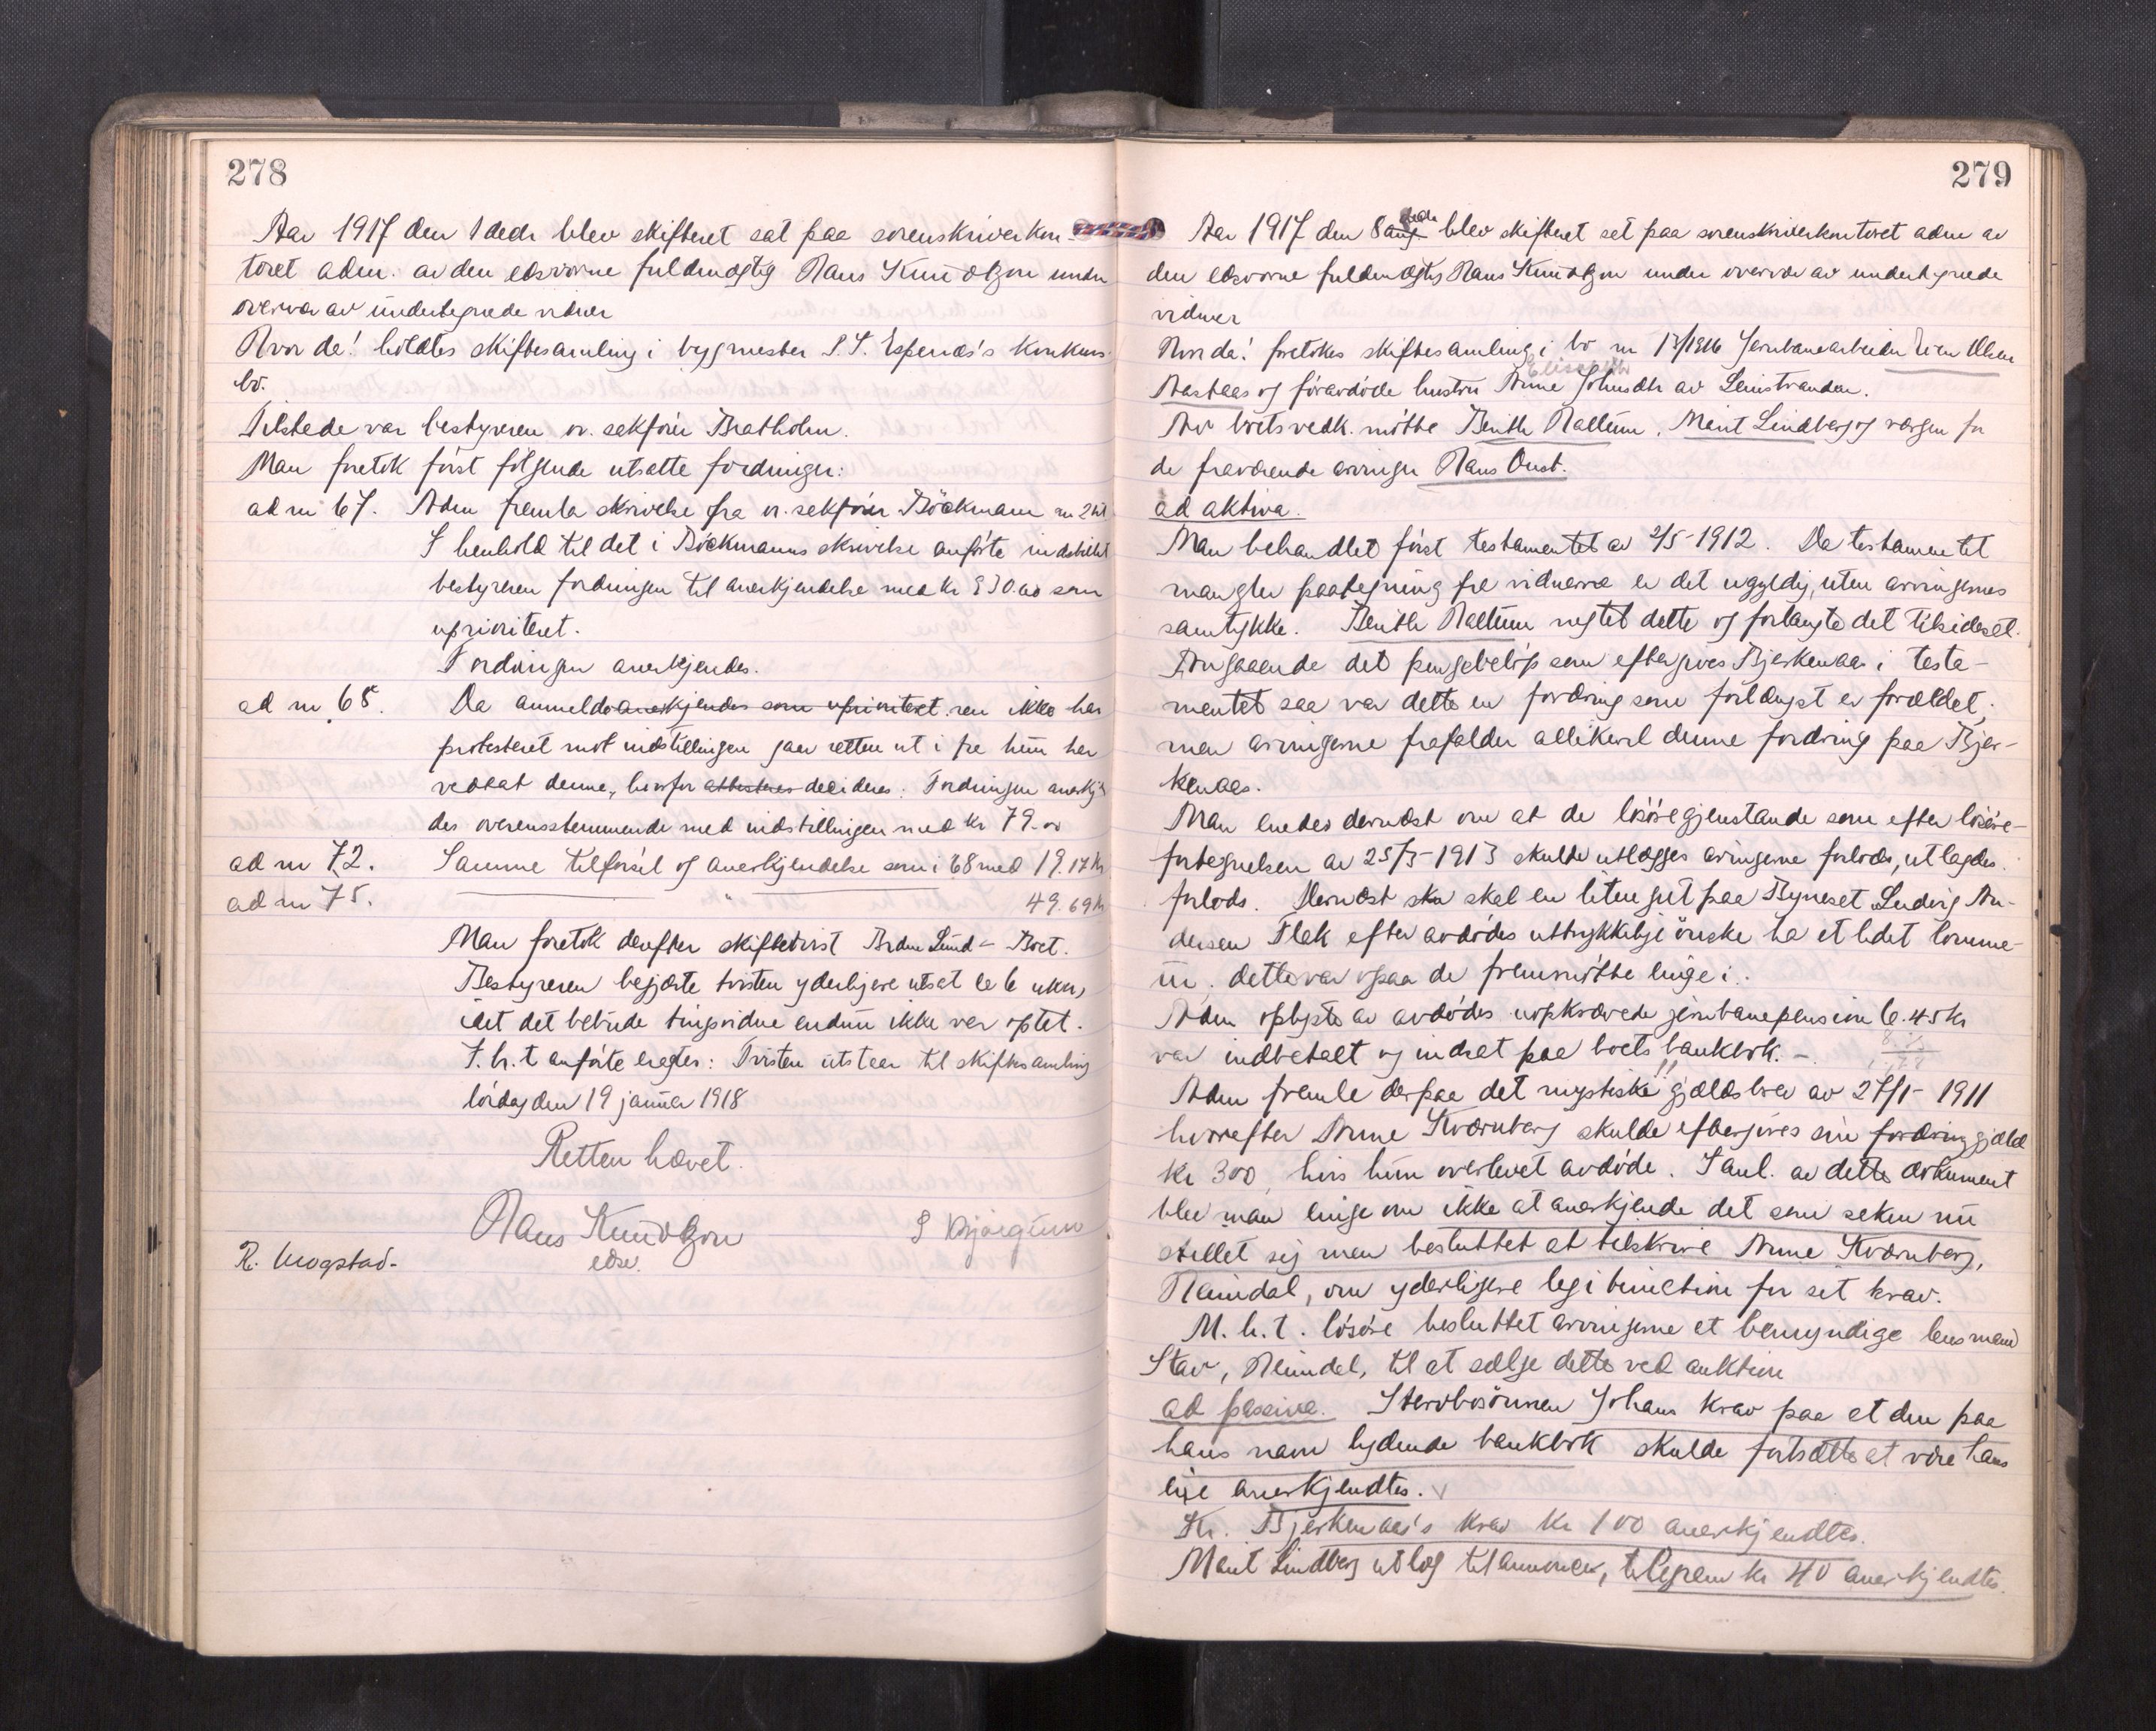 278
Aar 1917 den 1 decbr blev skifteret sat paa sorenskriverkon-
toret adm. av den edsvorne fuldmægtig Hans Knudtzon under
overvær av undertegnede vidner
Hvor da! holdtes skiftesamling i bygmester P. S. Espenæs's konkurs
bo.
Tilstede var bestyreren o.r. sakfører Bratholm.
Man foretok først følgende utsatte fordringer:
ad nr 67. Adm fremla skrivelse fra o.r. sakfører Böckmann
I henhold til det i Böckmanns skrivelse anførte indstillet
bestyreren fordringen til anerkjendelse med kr 930.00 som
uprioritert.
Fordringen anerkjendes.
ad nr 68. Da anmelderen anerkjendes som uprioritert ikke har
protesteret mot indstillingen gaar retten ut i fra hun har
vedtat denne, hvorfor attesteres decideres: Fordringen anerkj
des overensstemmende med indstillingen med kr 79.00
ad nr 72. Samme tilførsel og anerkjendelse som i 68 med 19.17 kr
ad nr 75. " 49.69 kr
Man foretok derefter skiftetvist Brdr Lund - Boet.
Bestyreren begjærte tvisten yderligere utsat ca 6 uker,
idet det bebudede tingsvidne endnu ikke var optat.
F. h. t anførte eragtes: Tvisten utstaar til skiftesamling
lördag den 19 januar 1918
Retten hævet.
Hans Knudtzon
eds.
R. Mogstad.
279
Aar 1917 den 8 aug decbr blev skifteret sat paa sorenskriverkontoret adm av
den edsvorne fuldmægtig Hans Knudtzon under overvær av undertegnede
vidner
Hvor da! foretokes skiftesamling i bo nr 13/1916 Jernbanearbeider Olsen
Elisabeth
Aastaas og foravdöde hustru Anne Johnsdtr av Leinstranden.
Av boets vedk. mötte Berith Hallum, Marit Lindberg og vergen for
de fraværende arvinger Hans Onst.
ad aktiva.
Man behandlet först testamentet av 2/5-1912. Da testamentet
mangler paategning fra vidnerne er det ugyldig, uten arvingernes
samtykke. Berith Hallum negtet dette og forlangte det tilsidesat.
Angaaende det pengebelöp som eftergives Bjerkenaas i testa-
mentet saa var dette en fordring som forlængst er forældet;
men arvingerne frafalder allikevel denne fordring paa Bjer-
kenaas.
Man enedes dernæst om at de lösöregjenstande som efter lösöre-
fortegnelsen av 25/3-1913 skulde utlægges arvingerne forlods, utlagdes
forlods. Dernæst ska skal en liten gut paa Byneset Ludvig An-
dersen Flak efter avdödes uttrykkelige önske ha et lidet lomme-
ur. dette var ogsaa de fremmötte enige i.
Adm oplyste av avdödes uopkrævede jernbanepension 6.45 kr
var indbetalt og indsat paa boets bankbok. -
Adm fremla derpaa det mystiske!! gjældsbrev av 27/1-1911
hvorefter Anne Kværnberg skulde eftergives sin fordring gjæld
kr 300, hvis hun overlevet avdöde. I anl. av dette dokument
blev man enige om ikke at anerkjende det som saken nu
stillet sig men besluttet at tilskrive Anne Kværnberg,
Heimdal, om yderligere legitimation for sit krav.
M. h. t. lösöre besluttet arvingerne at bemyndige lensmand
Stav, Heimdal, til at sælge dette ved auktion
ad passiva. Stervbosönnen Johans krav paa at den paa
hans navn lydende bankbok skulde fortsætte at være hans
eie anerkjendtes. v
Kr. Bjerkenaas's krav kr 100 anerkjendtes.
Marit Lindberg utlæg til annoncer, telegram kr 40 anerkjendtes.